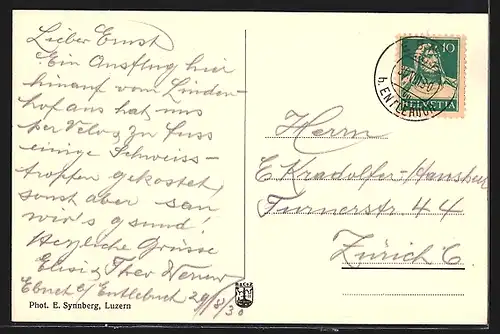 Lieber Ernst
Ein Ausflug hier
hinauf vom Linden-
hof aus hat uns
per Velo & zu Fuss
einige Schweiss-
tropfen gekostet,
sonst aber san
wir's g'sund!
Herzliche Grüsse
Elisi & Theo
Ebnet b/ Entlebuch 29/8/30
Phot. E. Synnberg, Luzern
10
HELVETIA
b. ENTLEBUCH
Herrn
E. Kradolfer-Hansheer
Turnerstr. 44
Zürich 6.